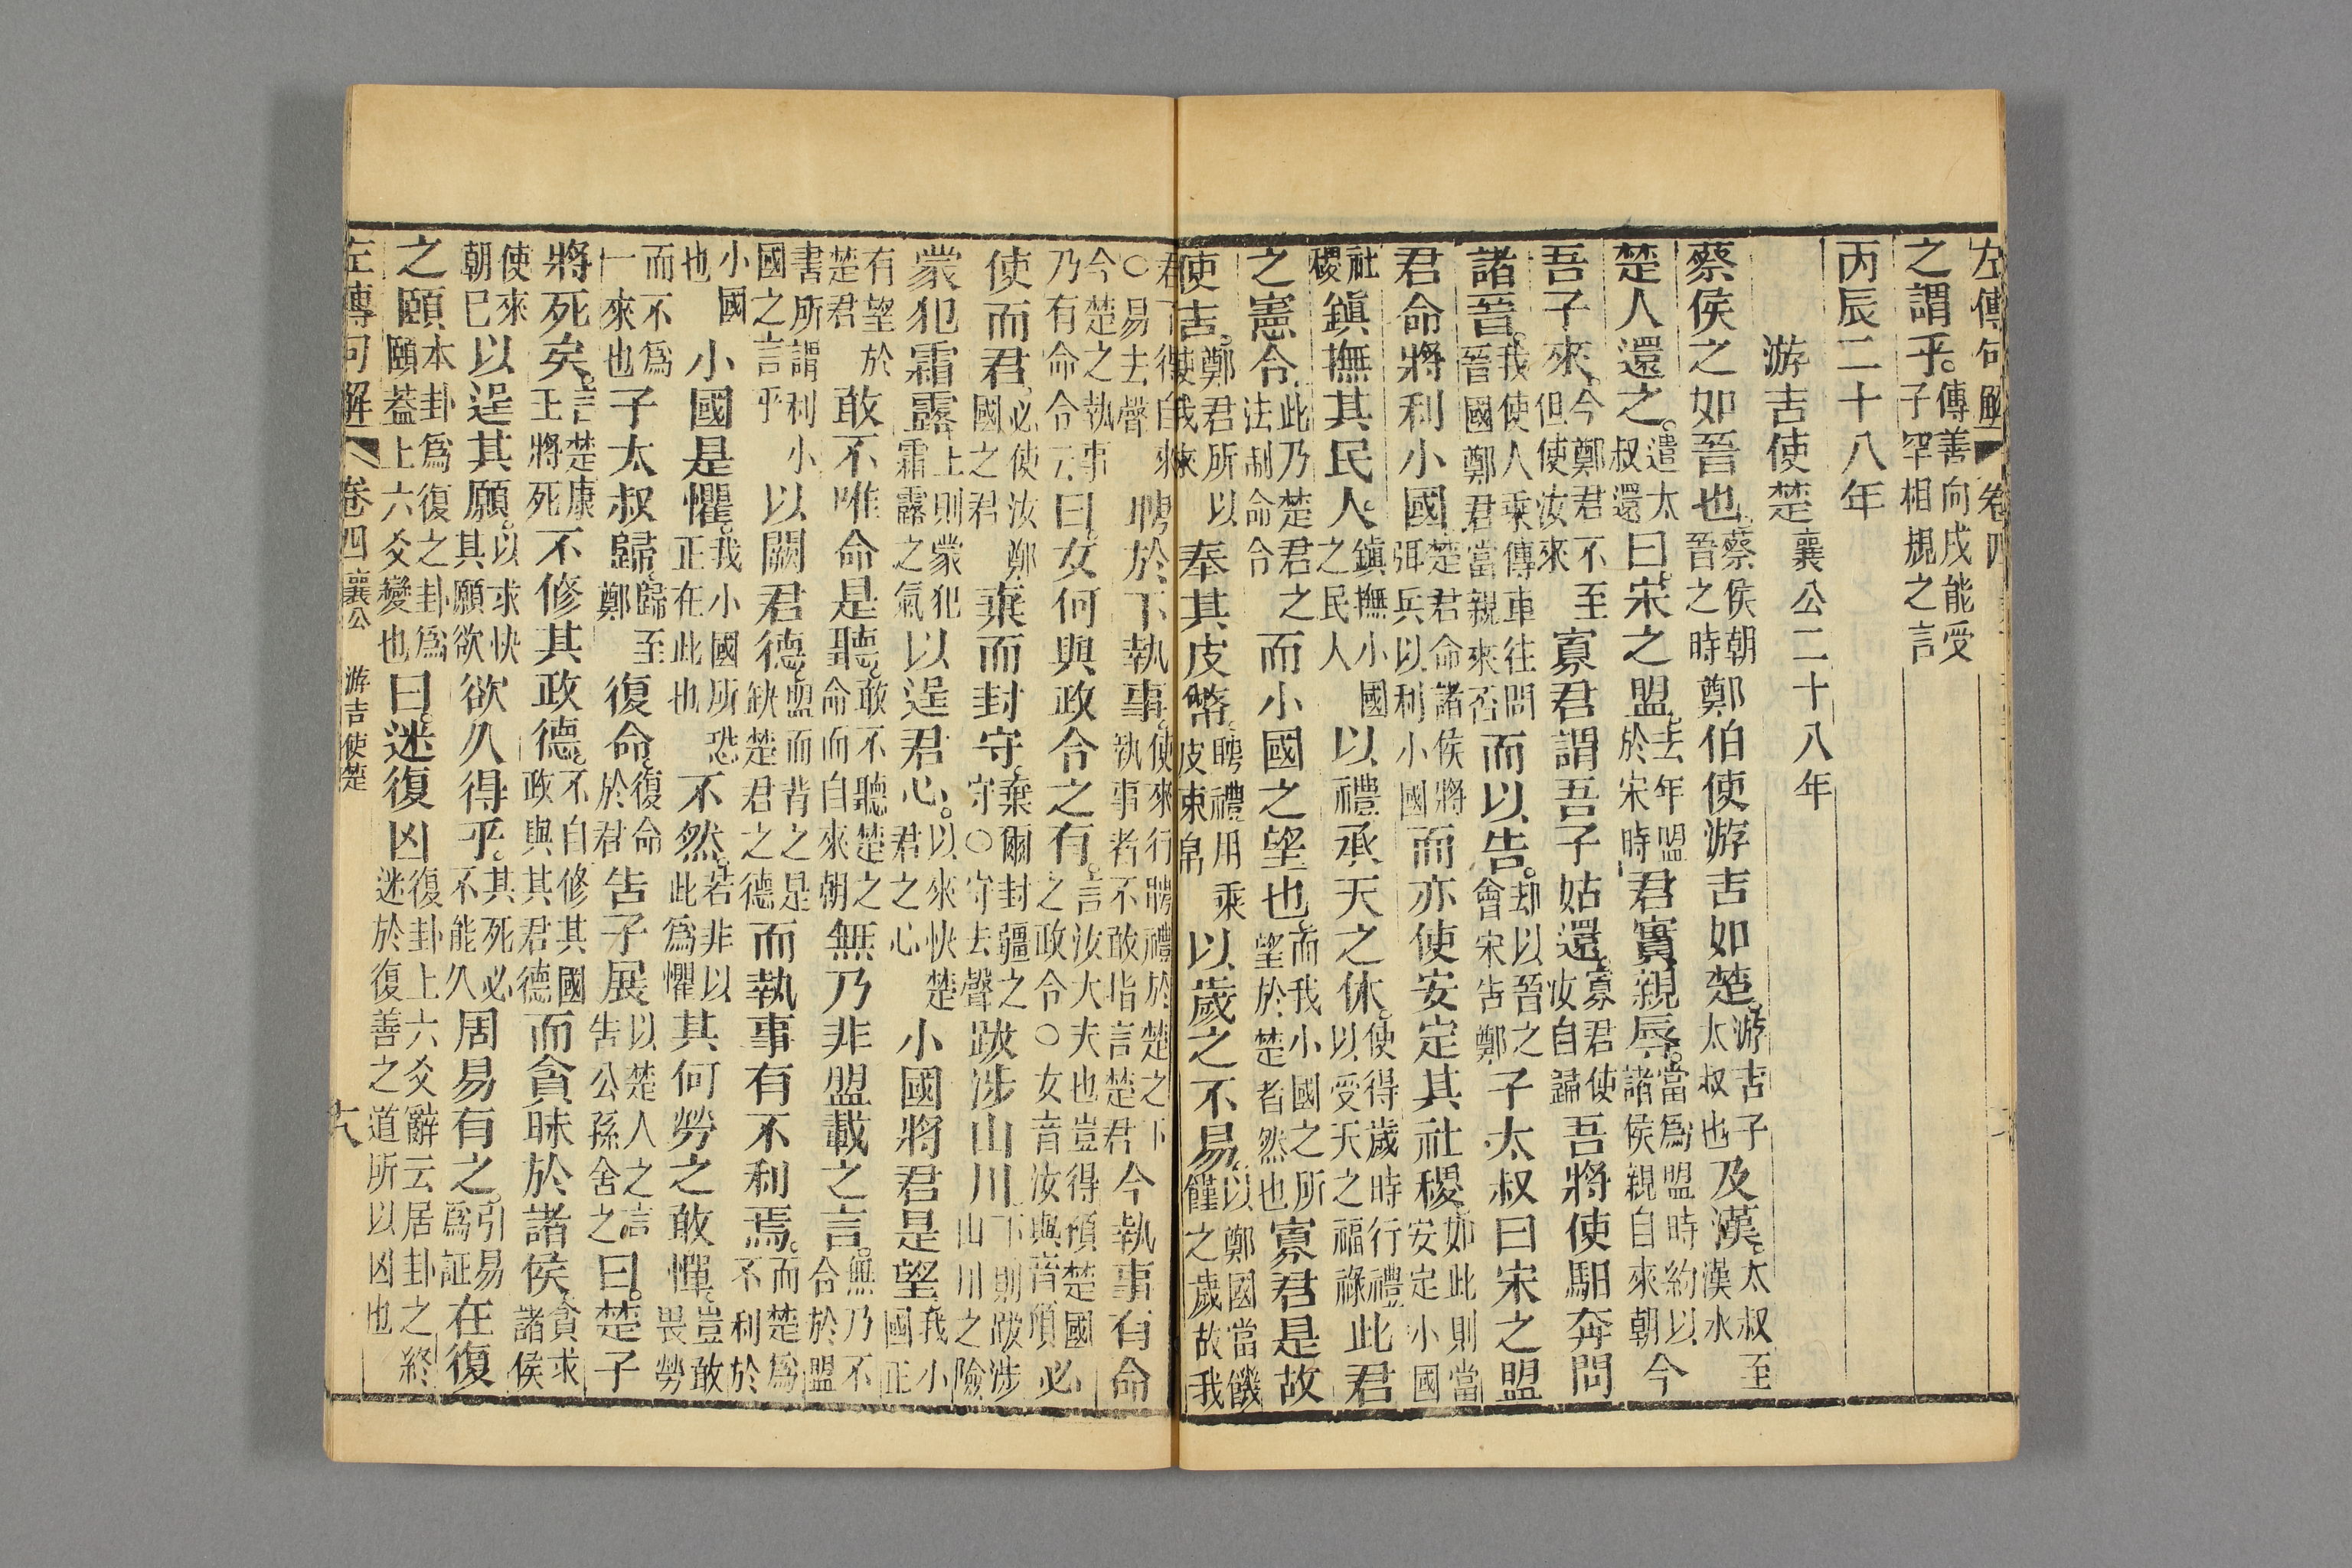 左傳句解 卷四
之謂乎。傳善向戌能受子罕相規之言
丙辰二十八年
游吉使楚 襄公二十八年
蔡侯之如晉也。蔡侯朝晉之時鄭伯使游吉如楚。游吉子太叔也及漢。太叔至漢水
楚人還之。遣太叔還曰宋之盟。去年盟於宋時君實親辱。當爲盟時約以諸侯親自來朝今
吾子來。今鄭君不至但使汝來寡君謂吾子姑還。寡君使汝自歸吾將使馹奔問
諸晉。我使人乘傳車往問晉國鄭君當親來否而以告。却以晉之會宋告鄭子太叔曰宋之盟
君命將利小國楚君命諸侯將弭兵以利小國而亦使安定其社稷如此則當安定小國
社稷鎭撫其民人。鎭撫小國之民人以禮承天之休。使得歲時行禮以受天之福祿此君
之憲令。此乃楚君之法制命令而小國之望也。而我小國之所望於楚者然也寡君是故
使吉。鄭君所以使我來奉其皮幣。聘禮用乘皮束帛以歲之不易。以鄭國當饑饉之歲故我
君不得自來○易去聲聘於下執事。使來行聘禮於楚之下執事者不敢指言楚君今執事有命
今楚之執事乃有命令云曰。女何與政令之有。言汝大夫也豈得預楚國之政令○女音汝與音預必
使而君。必使汝鄭國之君棄而封守。棄爾封疆之守○守去聲跋涉山川下則跋涉山川之險
蒙犯霜露上則蒙犯霜露之氣以逞君心。以來快楚君之心小國將君是望我小國正
有望於楚君敢不唯命是聽。敢不聽楚之命而自來朝無乃非盟載之言。無乃不合於盟
書所謂利小國之言乎以闕君德。盟而背之是缺楚君之德而執事有不利焉。而楚爲不利於
小國也小國是懼。我小國所恐正在此也不然。若非以此爲懼其何勞之敢憚。豈敢畏勞
而不爲一來也子太叔歸。歸至鄭復命。復命於君告子展以楚人之言告公孫舍之曰。楚子
將死矣。言楚康王將死不修其政德。不自修其國政與其君德而貪昧於諸侯。貪求諸侯
使來朝已以逞其願。以求快其願欲欲久得乎。其死必不能久周易有之。引易爲証在復
之頤本卦爲復之卦爲頤葢上六爻變也曰。迷復凶復卦上六爻辭云居卦之終迷於復善之道所以凶也
左傳句解 卷四 襄公 游吉使楚 十八